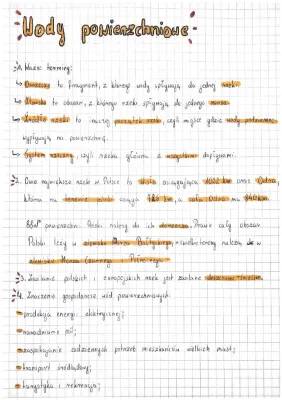 Wody powierzchniowe
1. Ważne terminy:
↳ Dorzecze to fragment, z którego wody spływają do jednej rzeki.
↳ Zlewisko to obszar, z którego rzeki spływają do jednego morza.
↳ Źródło rzeki to inaczej początek rzeki, czyli miejsce gdzie wody podziemne
wypływają na powierzchnię.
↳ System rzeczny, czyli rzeka główna z wszystkimi dopływami.
2. Dwie największe rzeki w Polsce to Wisła osiągająca 1022 km oraz Odra,
która na terenie Polski osiąga km, a cała Odra ma 840km.
88% powierzchni Polski należy do ich dorzecza. Prawie cały obszar
Polski leży w zlewisku Morza Bałtyckiego, niewielkie tereny należą do w
zlewiska Morza Czarnego Północnego
3. Zasilanie polskich i europejskich rzek jest zasilanie deszczowo-śnieżne.
4. Znaczenie gospodarcze wód powierzchniowych:
• produkcja energii elektrycznej;
• nawadnianie pól;
• zaspokajanie codziennych potrzeb mieszkańców wielkich miast;
• transport śródlądowy;
• turystyka i rekreacja;